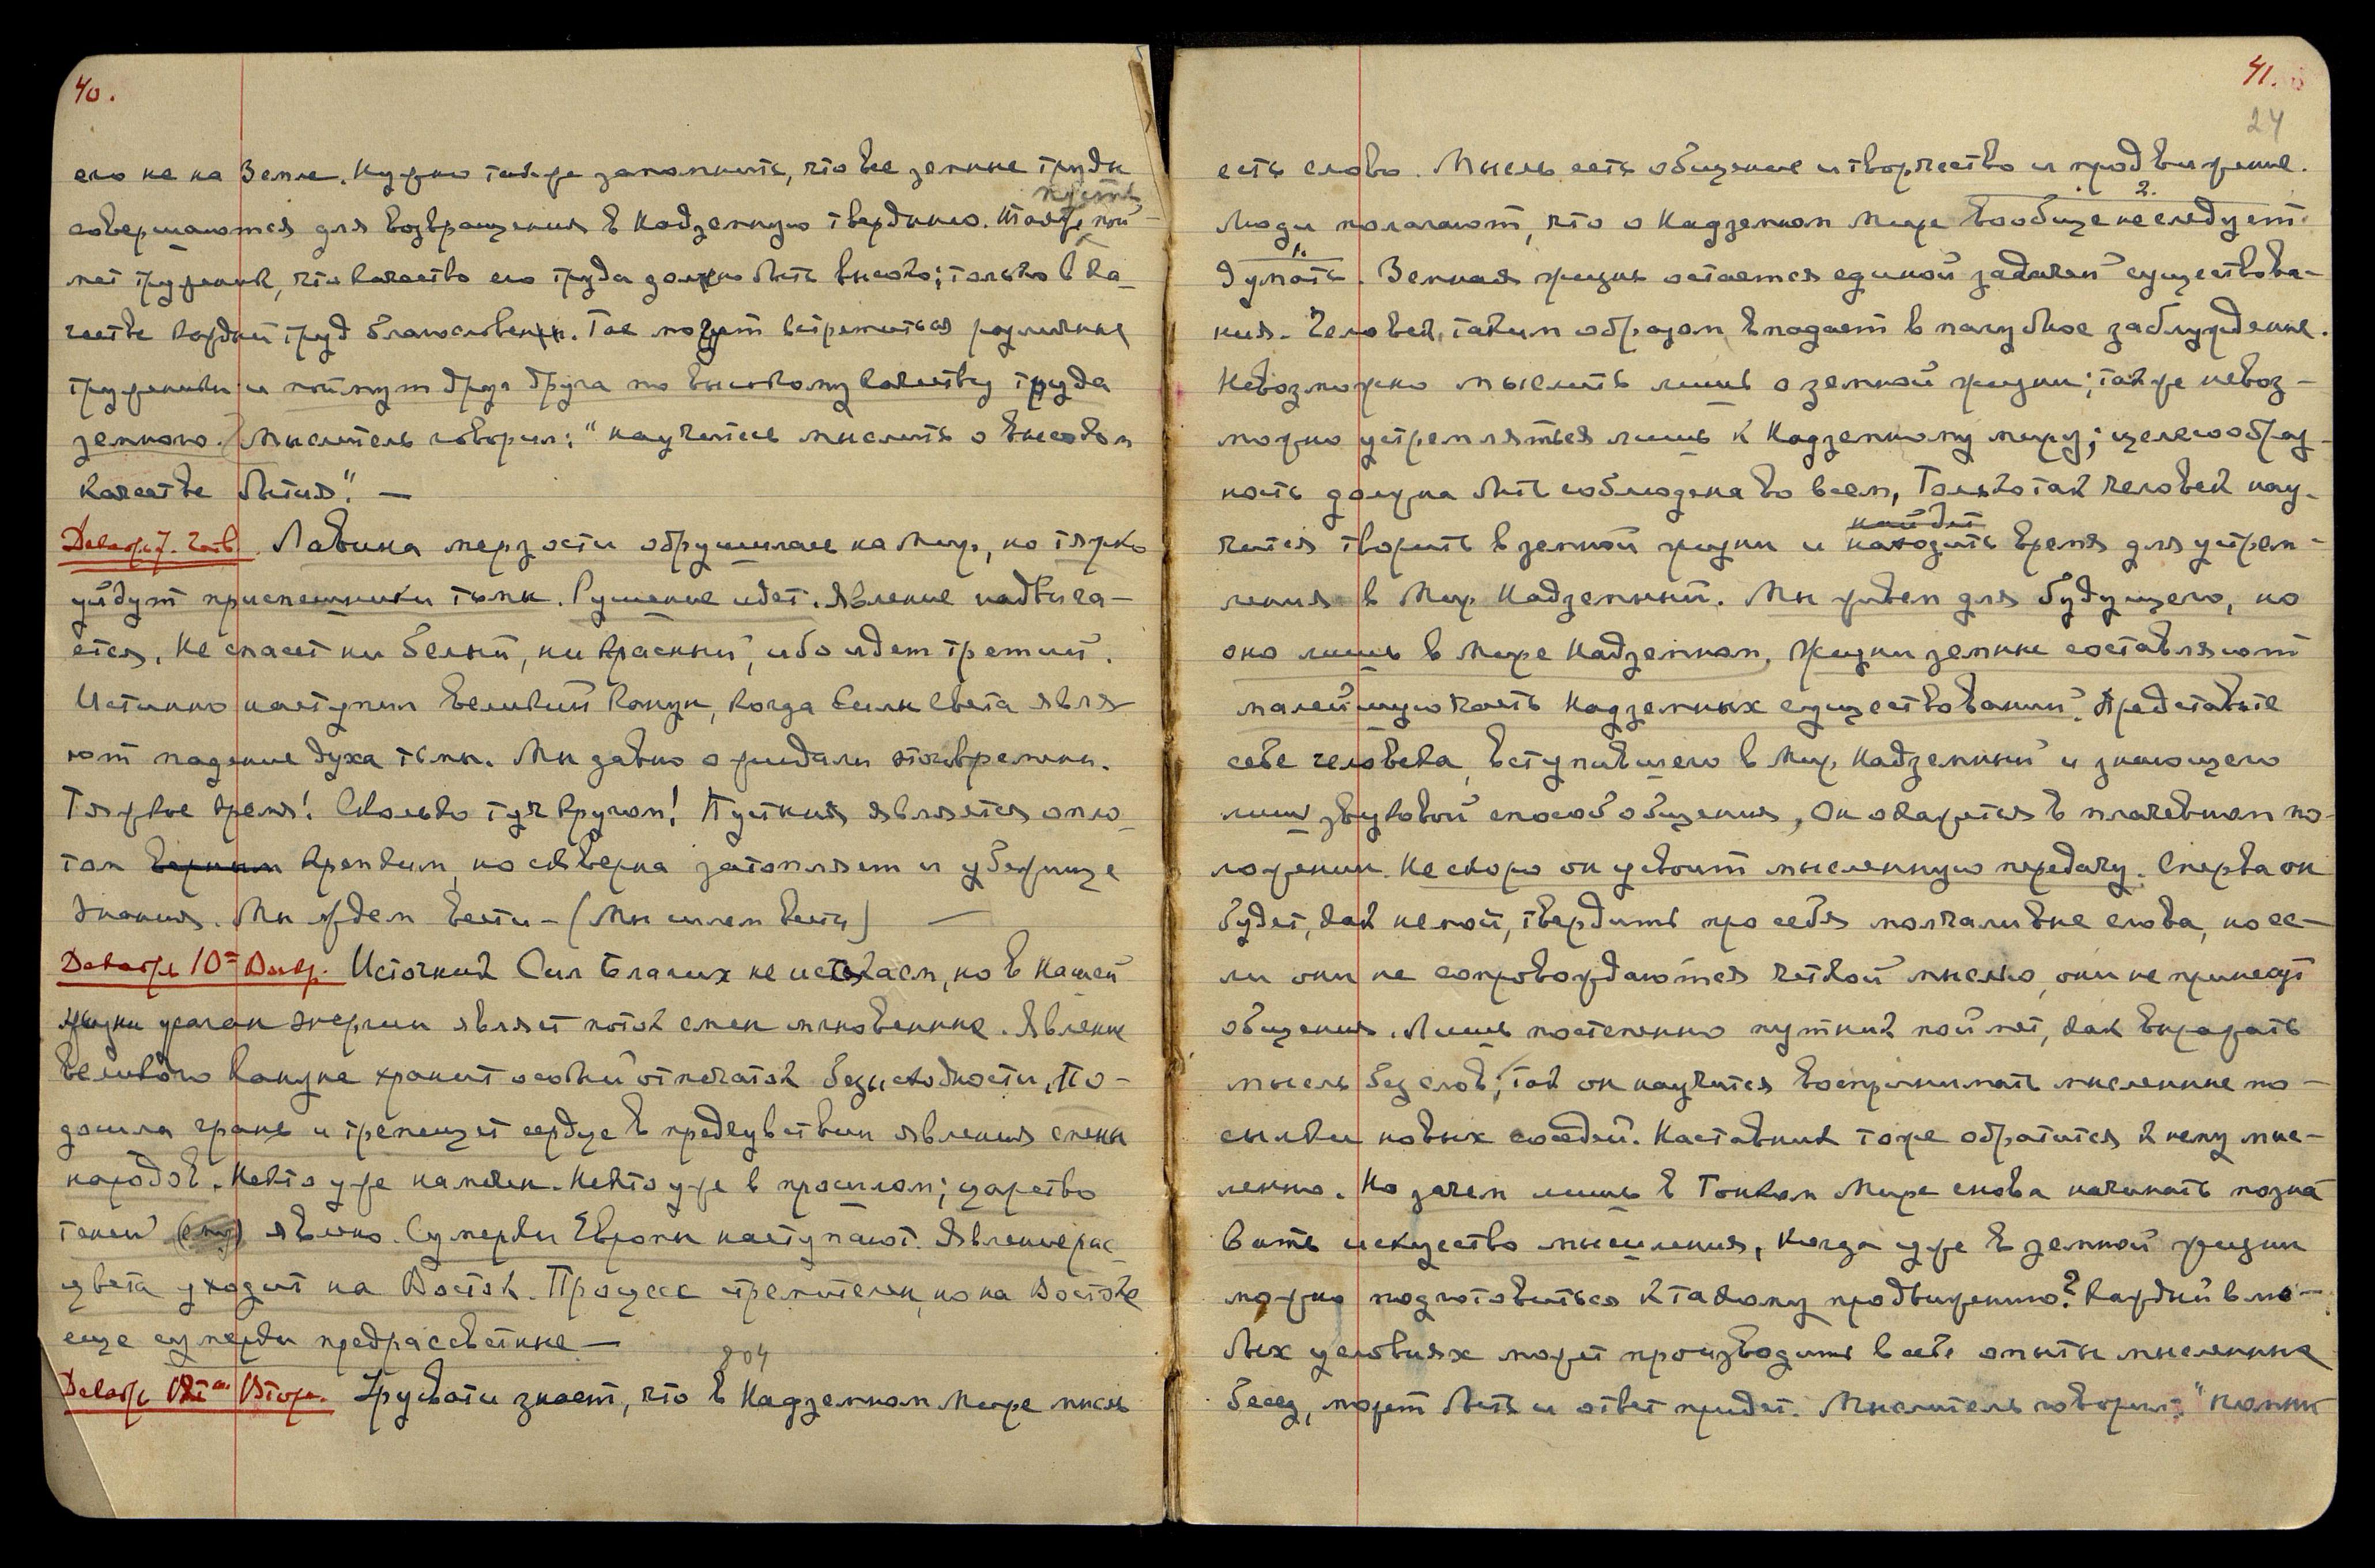 40.
его не на Земле. Нужно также запомнить, что все земные труды
пусть
совершаются для возвращения в Надземную твердыню. Также пой-
мет труженик, что качество его труда должно быть высоко; только в ка-
честве каждый труд благословен. Так могут встретиться различные
труженики и поймут друг друга по высокому качеству труда
земного. Мыслитель говорил: "научитесь мыслить о высоком
качестве бытия". —
Декабрь 7. Четв. Лавина мерзости обрушилась на Мир, но тяжко
уйдут приспешники тьмы. Рушение идет. Явление надвига-
ется. Не спасет ни белый, ни красный, ибо идет третий.
Истинно наступил великий канун, когда Силы Света явля-
ют падение духа тьмы. Мы давно ожидали этого времени.
Тяжкое время! Сколько туч кругом! Пустыня является опло-
том верным крепким, но скверна затопляет и убежище
знания. Мы ждем вести – (Мы шлем вести) —
Декабрь 10ое Воскр. Источник Сил Благих не истекаем, но в Нашей
жизни ураган энергии являет поток смен мгновенные. Явление
великого кануна хранит особый отпечаток безысходности, По-
дошла грань и трепещет сердце в предчувствии явления смены
народов. Некто уже намечен. Некто уже в прошлом; царство
теней явлено. Сумерки Европы наступают. Явление рас-
цвета уходит на Восток. Процесс стремителен, но на Востоке
еще сумерки предрассветные —
804
Декабрь Втор. Урусвати знает, что в Надземном Мире мысль
41.
24
есть слово. Мысль есть общение и творчество и продвижение.
2.
Люди полагают, что о Надземном Мире вообще не следует
1.
думать. Земная жизнь остается единой задачей существова-
ния. Человек, таким образом впадает в пагубное заблуждение.
Невозможно мыслить лишь о земной жизни; также невоз-
можно устремляться лишь к Надземному миру; целесообраз-
ность должна быть соблюдена во всем, Только так человек нау-
найдет
чится творить в земной жизни и находить время для устрем-
ления в Мир Надземный. Мы живем для будущего, но
оно лишь в Мире Надземном. Жизни земные составляют
малейшую часть Надземных существований. Представьте
себе человека, вступившего в Мир Надземный и знающего
лишь звуковой способ общения, Он окажется в плачевном по-
ложении. Не скоро он усвоит мысленную передачу. Сперва он
будет, как немой, твердить про себя молчаливые слова, но ес-
ли они не сопровождаются четкой мыслью, они не принесут
общения. Лишь постепенно путник поймет, как выражать
мысль без слов; так он научится воспринимать мысленные по-
сылки новых соседей. Наставник тоже обратится к нему мыс-
ленно. Но зачем лишь в Тонком Мире снова начинать позна
вать искусство мышления, когда уже в земной жизни
можно подготовиться к такому продвижению? Каждый в лю-
бых условиях может производить в себе опыты мысленных
бесед, может быть и ответ придет. Мыслитель говорил: "помни